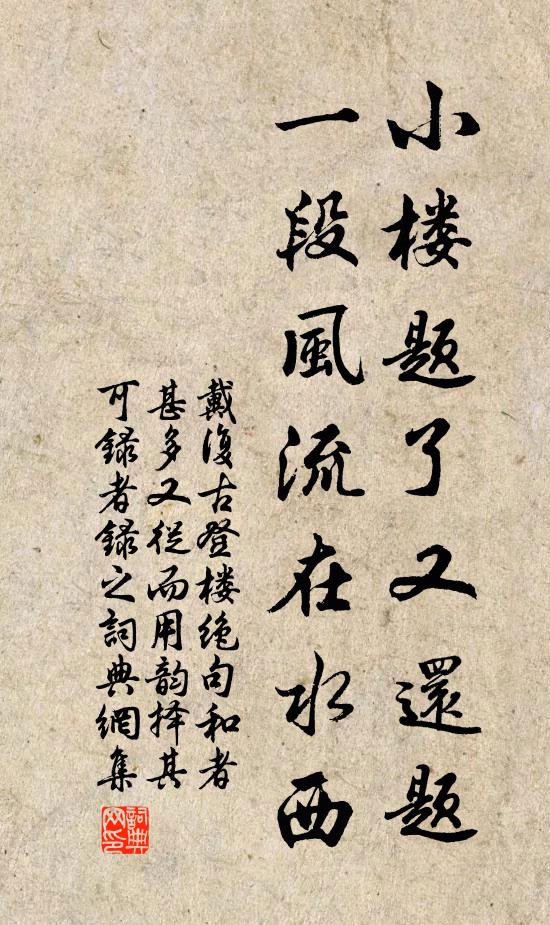 小楼题了又還题
一段風流在水西
戴復古登楼绝句和者
甚多又從而用韵择其
可録者録之詞典網集
詞典
网印